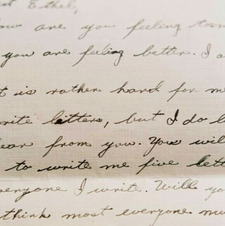 Ethel,
How are you feeling
you are feeling better. I
t is rather hard for m
rite letters, but I do l
ear from you. You wil
to write me five lett
everyone I write. Will yo
think most everyone mu